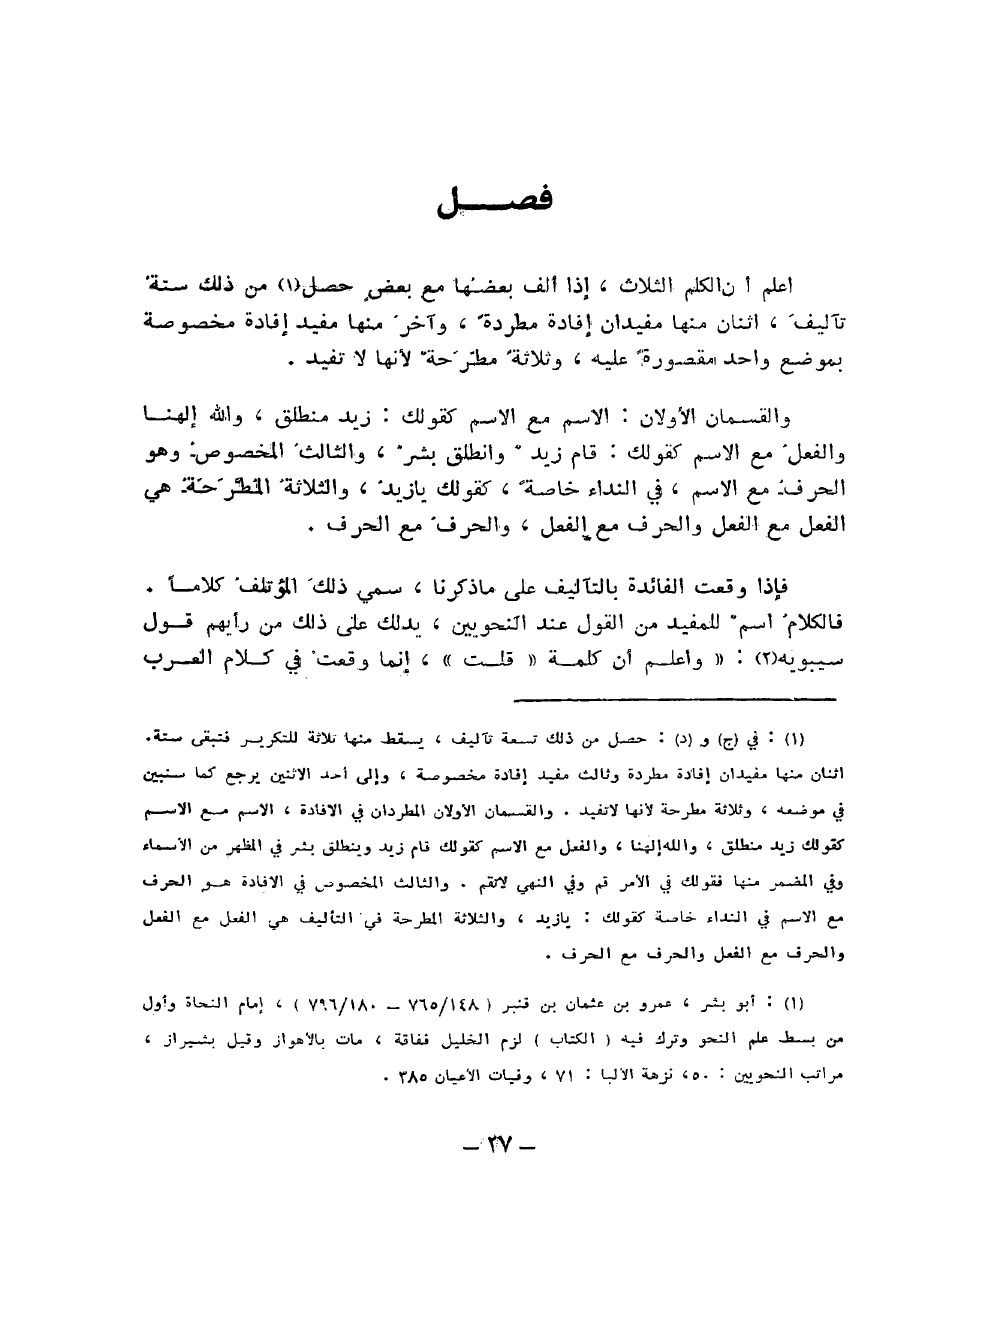 فصــــل
اعلم أ ن الكلم الثلاث ، إذا ألف بعضُها مع بعضٍ حصل(١) من ذلك ستةُ
تآليفَ ، اثنان منها مفيدان إفادة مطردةً ، وآخرُ منها مفيد إفادة مخصوصة
بموضع واحد مقصورةً عليه ، وثلاثةٌ مطرَحةٌ لأنها لا تفيد .
والقسمان الأولان : الاسم مع الاسم كقولك : زيد منطلق ، والله إلهنا
والفعلُ مع الاسم كقولك : قام زيد ٌ وانطلق بشرٌ ، والثالثُ المخصوصُ وهو
الحرفُ مع الاسم ، في النداء خاصةً ، كقولك يازيدُ ، والثلاثةُ المُطَّرَحَةُ هي
الفعل مع الفعل والحرف مع الفعل ، والحرفُ مع الحرف .
فإذا وقعت الفائدة بالتآليف على ماذكرنا ، سمي ذلكَ المؤتلفُ كلاماً .
فالكلامُ اسمٌ للمفيد من القول عند النحويين ، يدلك على ذلك من رأيهم قول
سيبويه(٢) : « واعلم أن كلمة « قلت » ، إنما وقعتْ في كلام العرب
(١) : في (ج) و (د) : حصل من ذلك تسعة تآليف ، يسقط منها ثلاثة للتكرير فتبقى ستة.
اثنان منها مفيدان إفادة مطردة وثالث مفيد إفادة مخصوصة ، وإلى أحد الاثنين يرجع كما سنبين
في موضعه ، وثلاثة مطرحة لأنها لاتفيد . والقسمان الأولان المطردان في الافادة ، الاسم مع الاسم
كقولك زيد منطلق ، واللهإلهنا ، والفعل مع الاسم كقولك قام زيد وينطلق بشر في المظهر من الأسماء
وفي المضمر منها فقولك في الأمر قم وفي النهي لاتقم . والثالث المخصوص في الافادة هو الحرف
مع الاسم في النداء خاصة كقولك : يازيد ، والثلاثة المطرحة في التأليف هي الفعل مع الفعل
والحرف مع الفعل والحرف مع الحرف .
(١) : أبو بشر ، عمرو بن عثمان بن قنبر ( ٧٦٥/١٤٨ – ٧٩٦/١٨٠ ) ، إمام النحاة وأول
من بسط علم النحو وترك فيه ( الكتاب ) لزم الخليل ففاقة ، مات بالأهواز وقيل بشيراز ،
مراتب النحويين : ٥٠، نزهة الألبا : ٧١ ، وفيات الأعيان ٣٨٥ .
– ٢٧ –